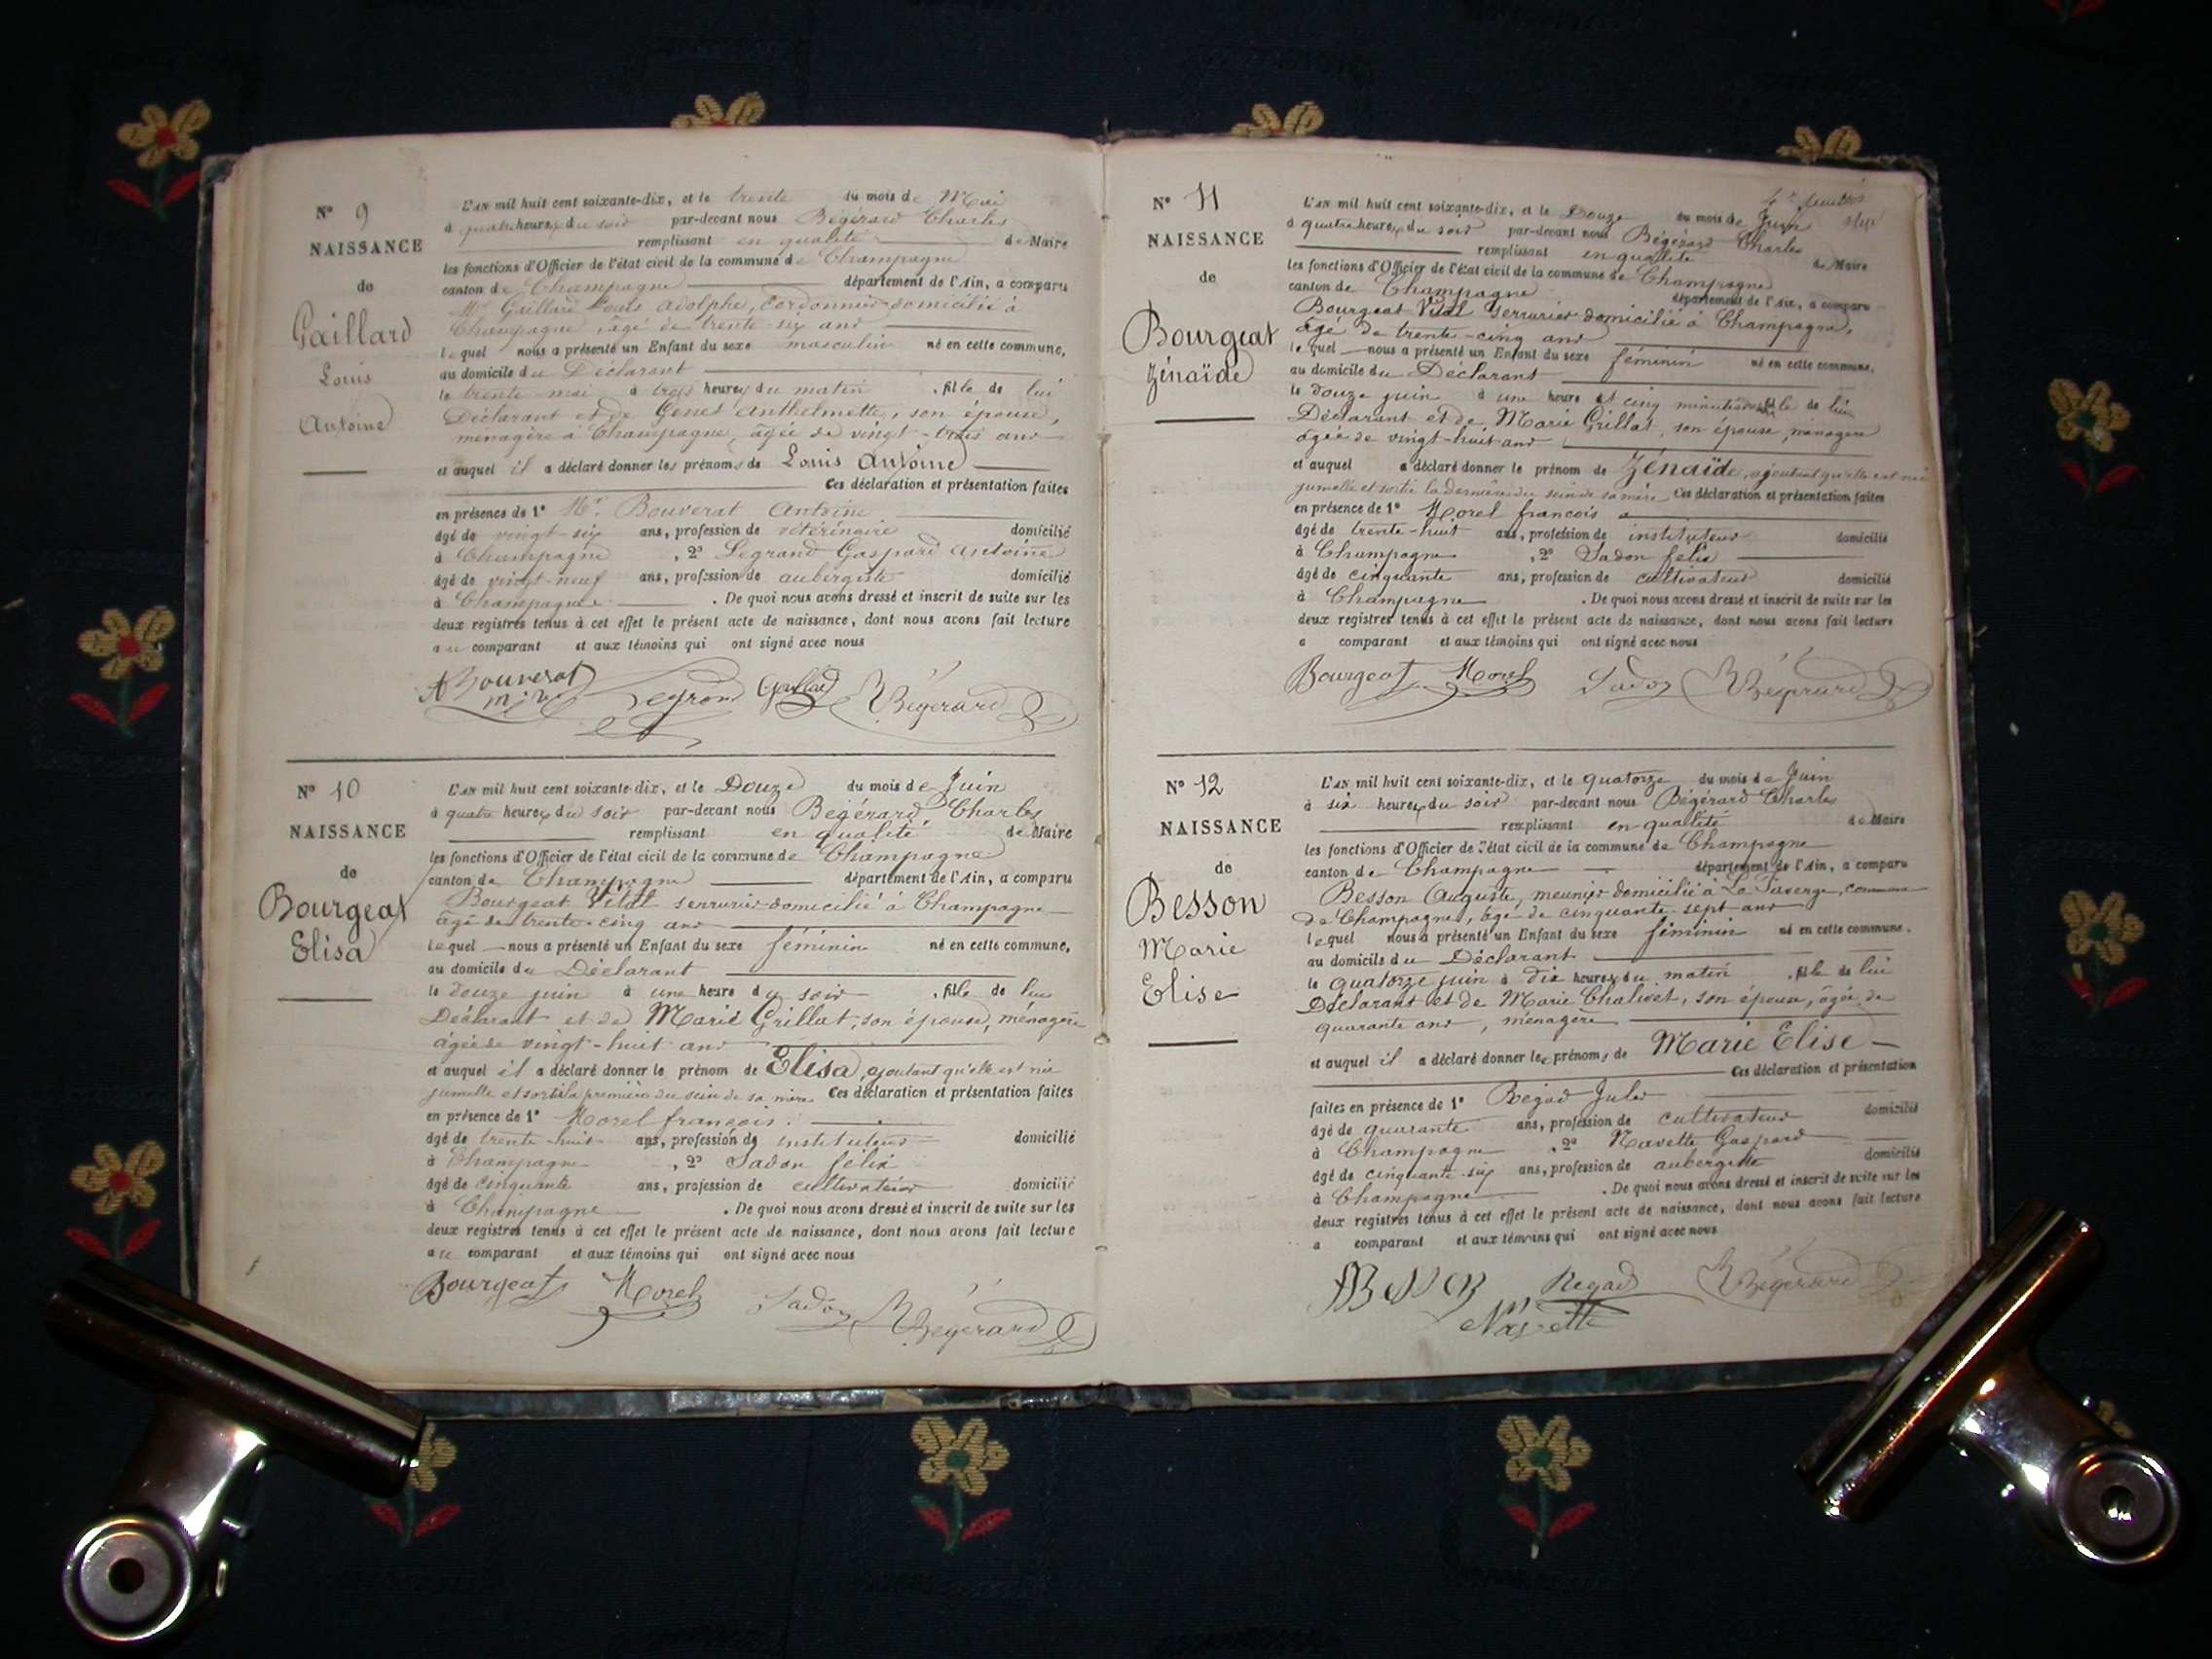 N° 9
NAISSANCE
de
Gaillard
Louis
Antoine
L'AN mil huit cent soixante-dix, et le trente du mois de Mai
à quatre heures du soir par-devant nous Bégérard Charles
remplissant en qualité de Maire
les fonctions d'Officier de l'état civil de la commune de Champagne
canton de Champagne département de l'Ain, a comparu
Mr Gaillard Louis Adolphe, cordonnier domicilié à
Champagne, âgé de trente-six ans
lequel nous a présenté un Enfant du sexe masculin né en cette commune,
au domicile du Déclarant
le trente mai à trois heures du matin, fils de lui
Déclarant et de Genet Anthelmette, son épouse,
menagère à Champagne, âgée de vingt-trois ans
et auquel il a déclaré donner les prénoms de Louis Antoine
Ces déclaration et présentation faites
en présence de 1° Mr. Bouverat Antoine
âgé de vingt-six ans, profession de vétérinaire domicilié
à Champagne, 2° Legrand Gaspard Antoine
âgé de vingt-neuf ans, profession de aubergiste domicilié
à Champagne. De quoi nous avons dressé et inscrit de suite sur les
deux registres tenus à cet effet le présent acte de naissance, dont nous avons fait lecture
au comparant et aux témoins qui ont signé avec nous
A Bouverat Legrand Gaillard Bégérard
N° 10
NAISSANCE
de
Bourgeat
Elisa
L'AN mil huit cent soixante-dix, et le Douze du mois de Juin
à quatre heures du soir par-devant nous Bégérard, Charles
remplissant en qualité de Maire
les fonctions d'Officier de l'état civil de la commune de Champagne
canton de Champagne département de l'Ain, a comparu
Bourgeat Vital serrurier domicilié à Champagne
âgé de trente-cinq ans
lequel nous a présenté un Enfant du sexe féminin né en cette commune,
au domicile du Déclarant
le douze juin à une heure du soir, fille de lui
Déclarant et de Marie Grillat, son épouse, ménagère
âgée de vingt-huit ans
et auquel il a déclaré donner le prénom de Elisa, ajoutant qu'elle est née
jumelle et sortie la première du sein de sa mère Ces déclaration et présentation faites
en présence de 1° Morel françois
âgé de trente-huit ans, profession de instituteur domicilié
à Champagne, 2° Sadon félix
âgé de cinquante ans, profession de cultivateur domicilié
à Champagne. De quoi nous avons dressé et inscrit de suite sur les
deux registres tenus à cet effet le présent acte de naissance, dont nous avons fait lecture
au comparant et aux témoins qui ont signé avec nous
Bourgeat Morel Sadon Bégérard
4e feuillet
N° 11
NAISSANCE
de
Bourgeat
Zénaïde
L'AN mil huit cent soixante-dix, et le Douze du mois de Juin
à quatre heures du soir par-devant nous Bégérard Charles
remplissant en qualité de Maire
les fonctions d'Officier de l'état civil de la commune de Champagne
canton de Champagne département de l'Ain, a comparu
Bourgeat Vital serrurier domicilié à Champagne,
âgé de trente-cinq ans
lequel nous a présenté un Enfant du sexe féminin né en cette commune,
au domicile du Déclarant
le douze juin à une heure et cinq minutes fille de lui
Déclarant et de Marie Grillat, son épouse, ménagère
âgée de vingt-huit ans
et auquel a déclaré donner le prénom de Zénaïde, ajoutant qu'elle est née
jumelle et sortie la dernière du sein de sa mère Ces déclaration et présentation faites
en présence de 1° Morel francois
âgé de trente-huit ans, profession de instituteur domicilié
à Champagne, 2° Sadon félix
âgé de cinquante ans, profession de cultivateur domicilié
à Champagne. De quoi nous avons dressé et inscrit de suite sur les
deux registres tenus à cet effet le présent acte de naissance, dont nous avons fait lecture
a comparant et aux témoins qui ont signé avec nous
Bourgeat Morel Sadon Bégérard
N° 12
NAISSANCE
de
Besson
Marie
Elise
L'AN mil huit cent soixante-dix, et le quatorze du mois de Juin
à six heures du soir par-devant nous Bégérard Charles
remplissant en qualité de Maire
les fonctions d'Officier de l'état civil de la commune de Champagne
canton de Champagne département de l'Ain, a comparu
Besson Auguste, meunier domicilié à La commune
de Champagne, âgé de cinquante-sept ans
lequel nous a présenté un Enfant du sexe féminin né en cette commune.
au domicile du Déclarant
le quatorze juin à dix heures du matin, fille de lui
Déclarant et de Marie Chalivet, son épouse, âgée de
quarante ans, ménagère
et auquel il a déclaré donner les prénoms de Marie Elise
Ces déclaration et présentation
faites en présence de 1° Regad Jules
âgé de quarante ans, profession de cultivateur domicilié
à Champagne, 2° Navette Gaspard
âgé de cinquante-six ans, profession de aubergiste domicilié
à Champagne. De quoi nous avons dressé et inscrit de suite sur les
deux registres tenus à cet effet le présent acte de naissance, dont nous avons fait lecture
a comparant et aux témoins qui ont signé avec nous
Regad Bégérard
Navette